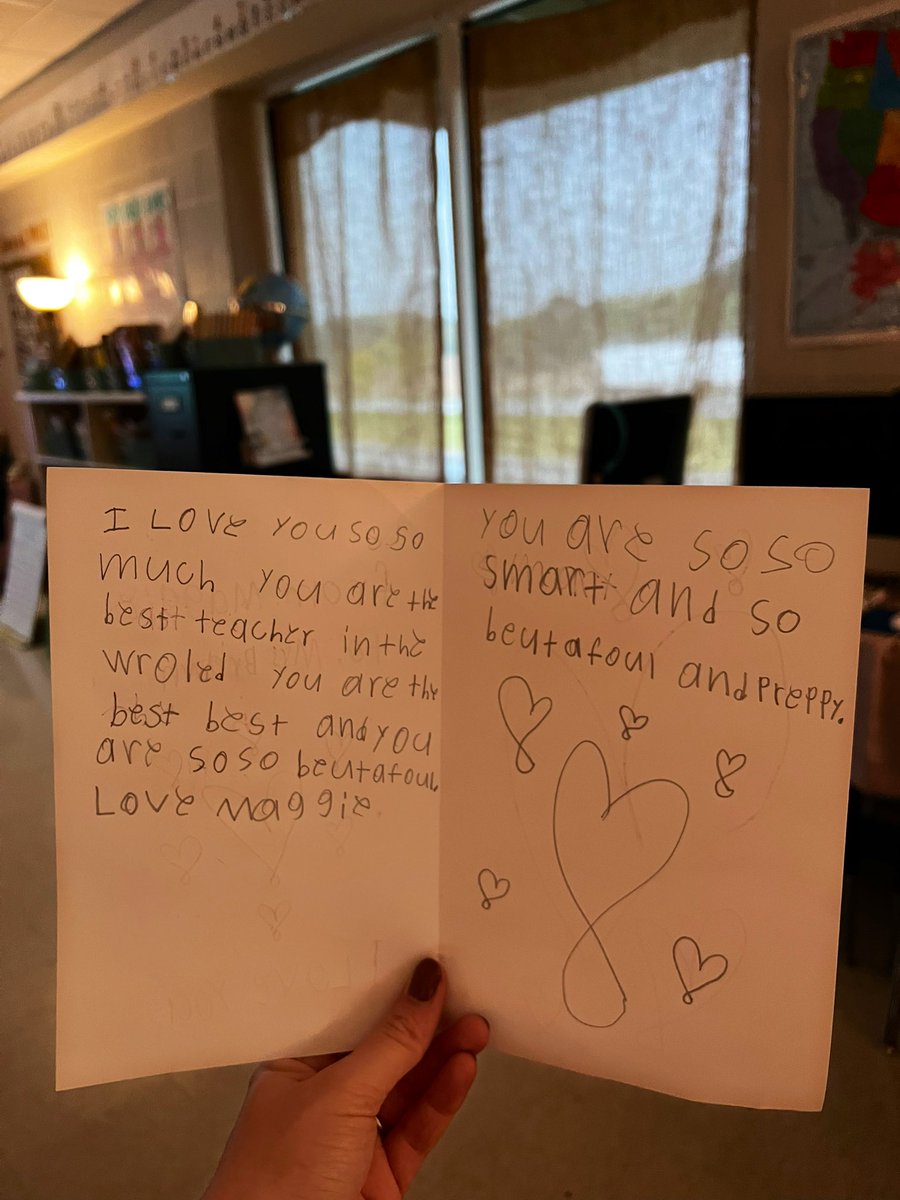 I LOVe YOU SO SO
much YOU are the
bestt teacher in the
wroled YOU are the
best best and you
are soso beutafoul
LOVe Maggie.
YOU are SO SO
smart and SO
beutafoul and Preppy.